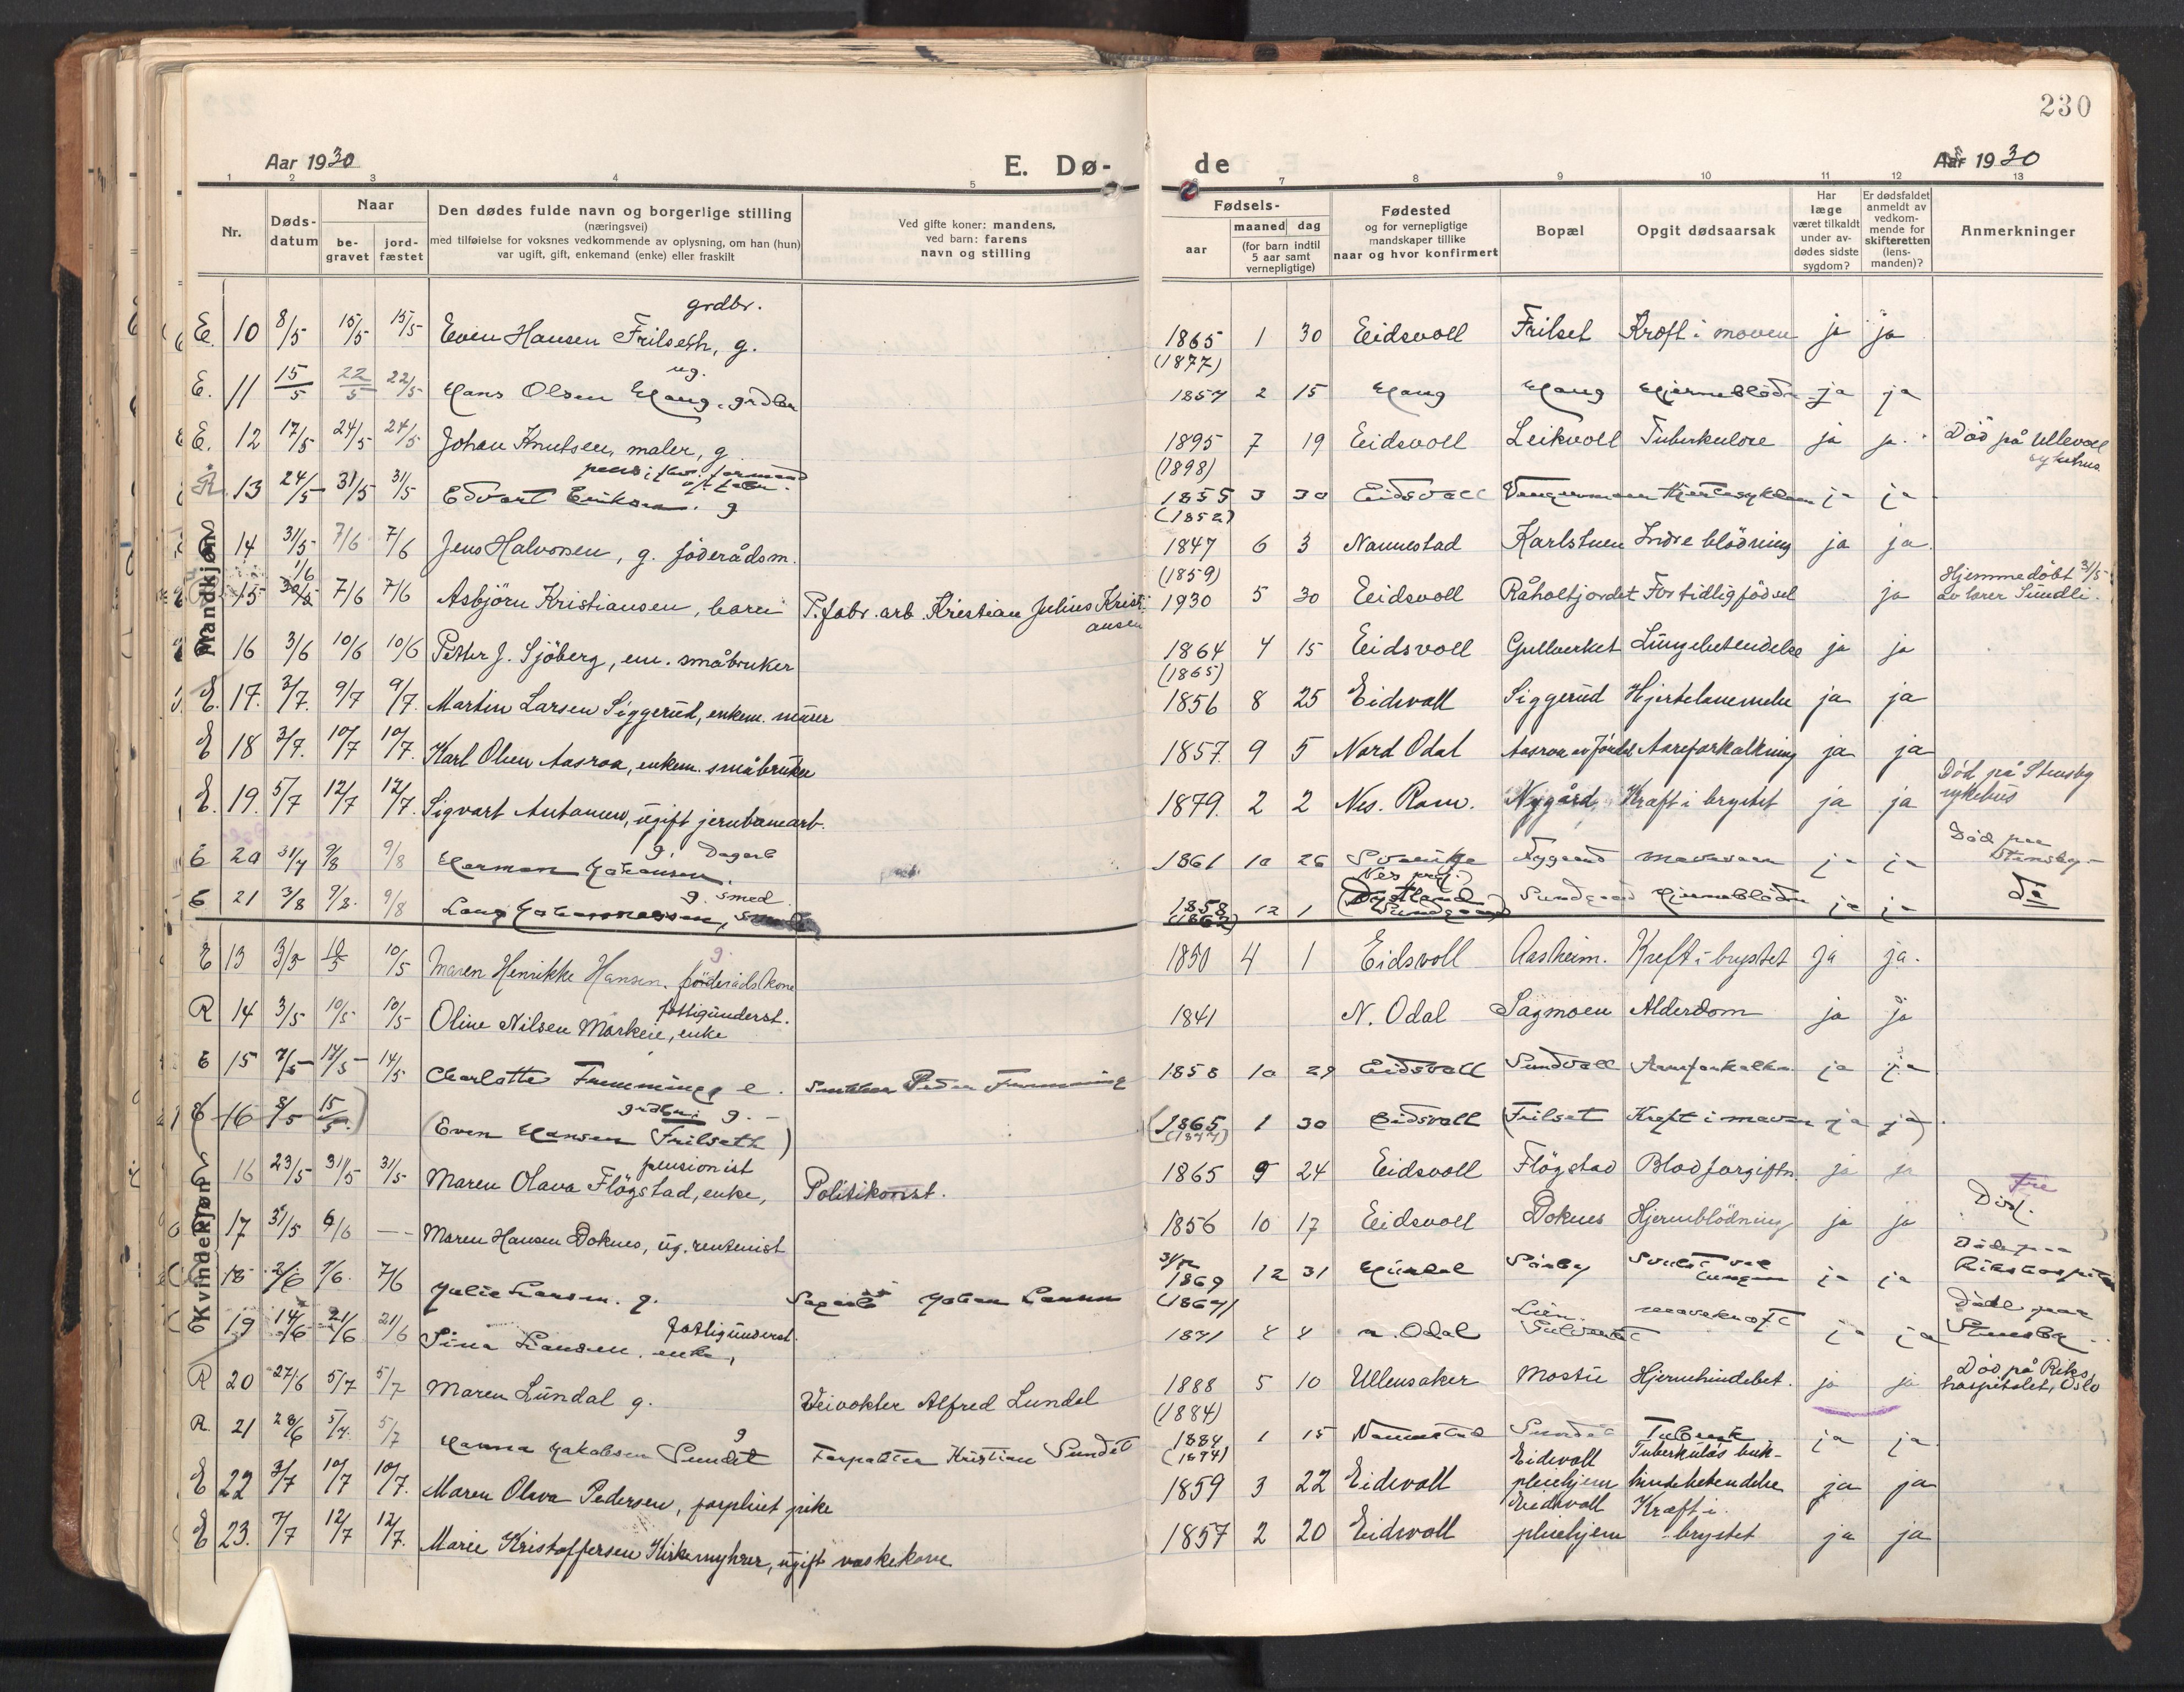 230
Aar 1930
E. Dø-
de
Aar 1930
1 2 3 4 5 7 8 9 10 11 12 13
Nr.
Døds-
datum
Naar
be-
gravet
jord-
fæstet
Den dødes fulde navn og borgerlige stilling
(næringsvei)
med tilføielse for voksnes vedkommende av oplysning, om han (hun)
var ugift, gift, enkemand (enke) eller fraskilt
Ved gifte koner: mandens,
ved barn: farens
navn og stilling
Fødsels-
aar
maaned dag
(for barn indtil
5 aar samt
vernepligtige)
Fødested
og for vernepligtige
mandskaper tillike
naar og hvor konfirmert
Bopæl
Opgit dødsaarsak
Har
læge
været tilkaldt
under av-
dødes sidste
sygdom?
Er dødsfaldet
anmeldt av
vedkom-
mende for
skifteretten
(lens-
manden)?
Anmerkninger
Mandkjøn
grdbr.
E. 10 8/5 15/5 15/5 Even Hansen Frilseth, g. 1865 1 30 Eidsvoll Frilset Kræft i maven ja ja
(1877)
ug.
E. 11 15/5 22/5 22/5 Hans Olsen Haug, grdbr 1857 2 15 Haug Haug Hjerneblödn. ja ja
E. 12 17/5 24/5 24/5 Johan Knutsen, maler, g. 1895 7 19 Eidsvoll Leikvoll Tuberkulose ja ja Død på Ullevoll
sykehus
(1898)
R. 13 24/5 31/5 31/5 Edvart Eriksen. g 1855 3 30 Eidsvoll Hjertesykdom ja ja
(1852)
14 31/5 7/6 7/6 Jens Halvorsen, g. föderådsm. 1847 6 3 Nannestad Karlstuen Indre blödning ja ja.
(1859)
1/6
15 30/5 7/6 7/6 Asbjörn Kristiansen, barn T. fabr. arb. Kristian Julius Kristi-
ansen
1930 5 30 Eidsvoll Råholtjordet For tidlig födsel ja Hjemmedöbt 31/5
av lærer Sundli.
16 3/6 10/6 10/6 Petter J. Sjöberg, em. småbruker 1864 4 15 Eidsvoll Gullverket Lungebetendelse ja ja
(1865)
E. 17. 3/7. 9/7 9/7. Martin Larsen Siggerud, enkem. murer 1856 8 25 Eidsvoll Siggerud Hjertelammelse ja ja
E 18 3/7. 10/7 10/7. Karl Olsen Aasroa, enkem. småbruker 1857. 9 5 Nord Odal Aasroa Aareforkalkning ja ja
E. 19. 5/7 12/7 12/7. Sigvart Antonsen, ugift jernbanearb. 1879. 2 2 Nes. Rom. Nygård Kræft i brystet ja ja Död på Stensby
sykehus
g. Dagarb
E 20 31/7 9/8 9/8 Herman Johansen. 1861 10 26 Sverige Nygaard ja ja Död paa
Stensby
g. smed
E 21 3/8 9/8. 9/8 1858 12 1 Sundgaard Hjerneblödn ja ja do
(1862)
Kvindekjøn
g.
E 13 3/5 10/5 10/5 Maren Henrikke Hansen. föderådskone 1850 4 1 Eidsvoll Aasheim. Kreft i brystet ja ja.
fattigunderst.
R 14 3/5 10/5 10/5 Oline Nilsen Markeie, enke 1841 N. Odal Sagmoen Alderdom ja ja
E 15 7/5 14/5 14/5 Charlotte Fremming e. Peder Fremming 1858 10 29 Eidsvoll Sundvoll Aareforkalkn ja ja
grdbr. g.
E 16 8/5 15/5.) (Even Hansen Frilseth) (1865 1 30 Eidsvoll Frilset Kreft i maven ja ja)
(1877)
pensionist
16 23/5 31/5 31/5 Maren Olava Flögstad, enke, Politikonst. 1865 9 24 Eidsvoll Flögstad Blodforgiftn. ja ja
17 31/5 6/6 — Maren Hansen Doknes, ug. rentenist 1856 10 17 Eidsvoll Doknes Hjerneblödning ja ja
18 2/6 7/6. 7/6 Julie Larsen. g. Sagarb Johan Larsen 1869 12 31 Hurdal Sörby ja ja Död paa
Rikshospital
(1867)
fattigunderst.
19 14/6 21/6 21/6 Sina Hansen. enke, 1841 4 4 N. Odal mavekræft ja ja Död paa
Stensby
R 20 27/6 5/7 5/7 Maren Lundal g. Veivokter Alfred Lundal 1888 5 10 Ullensaker Mostu Hjernehindebet. ja ja Död på Riks
hospitalet, Oslo
(1884)
g
R. 21 28/6 5/7. 5/7 Hanna Jakobsen Sundet Forpakter Kristian Sundet 1884 1 15 Nannestad Sundet Tuberk. ja ja
(1894)
E 22 3/7 10/7 10/7. Maren Olava Pedersen, forpleiet pike 1859 3 22 Eidsvoll Eidsvoll
pleiehjem Tuberkuløs buk-
hindebetendelse ja ja
E 23. 7/7 12/7 12/7. Marie Kristoffersen Kirkemyhrer, ugift vaskekone 1857 2 20 Eidsvoll Eidsvoll
pleiehjem Kræft i
brystet ja ja